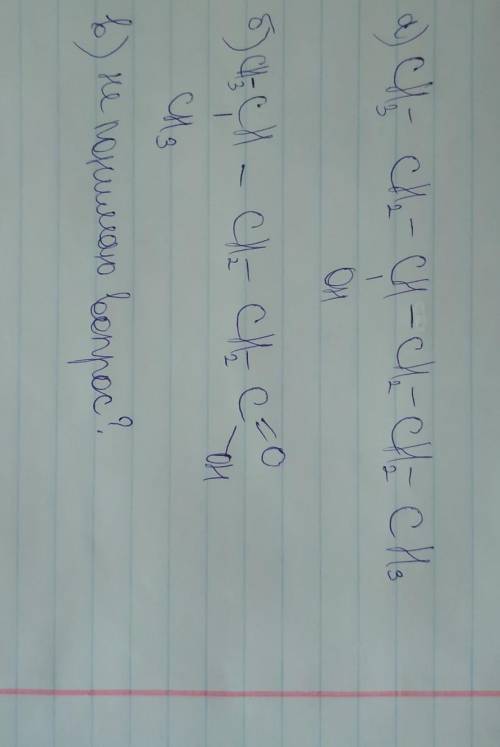 а) CH₃ – CH₂ – CH – CH₂ – CH₂ – CH₃
OH
б) CH₃ – CH – CH₂ – CH₂ – C = O
– OH
CH₃
в) не понимаю вопрос?